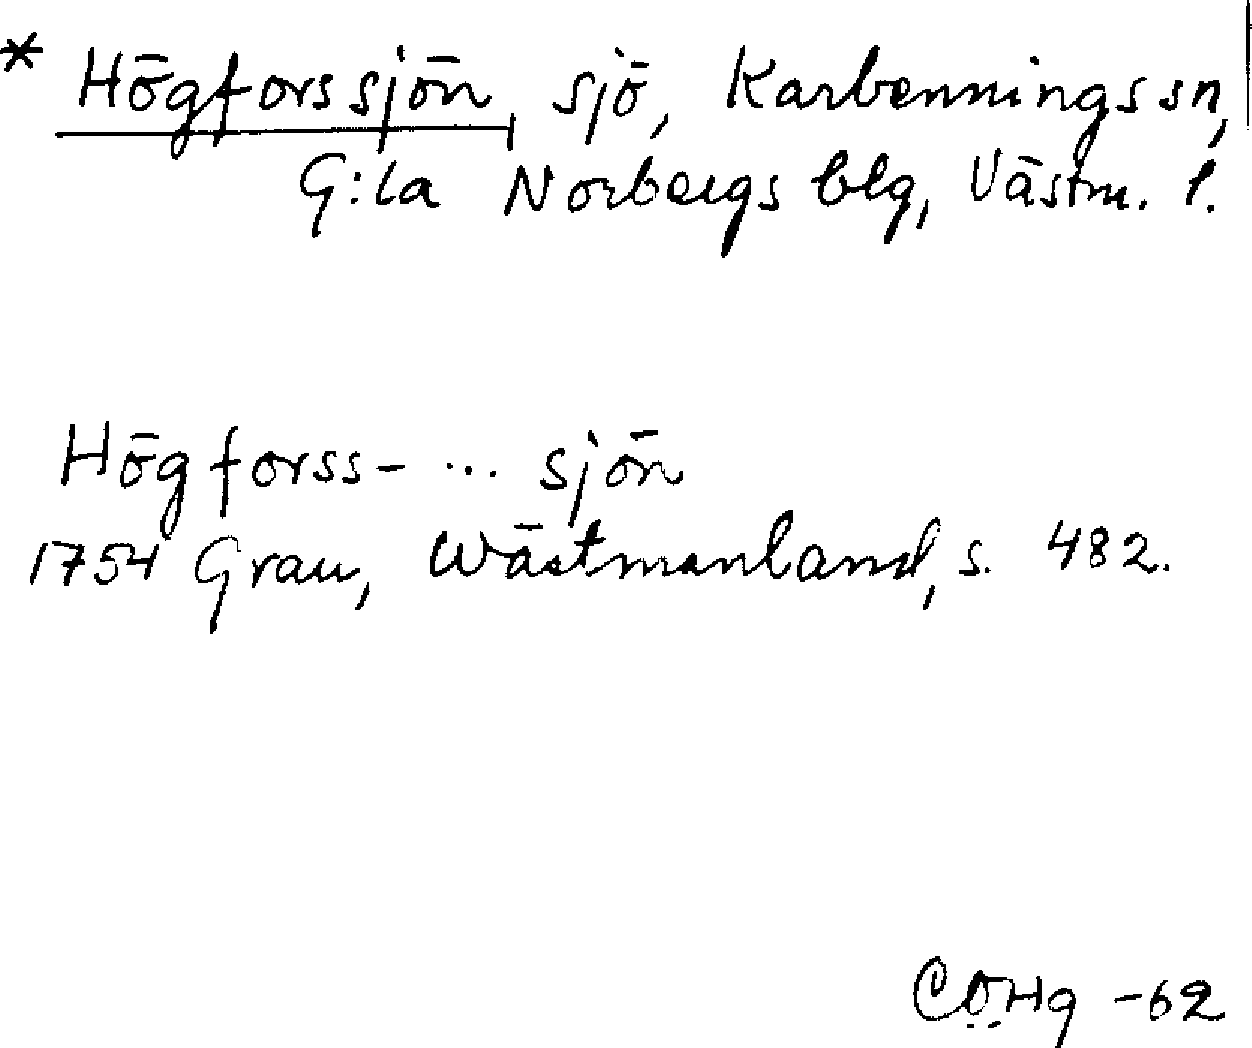 * Högforssjön sjö, Karbennings sn,
G:la Norbergs blg, Västm. l.
Högforss- ... sjön
1754 Grau, Wästmanland, s. 482.
CÖHg -62